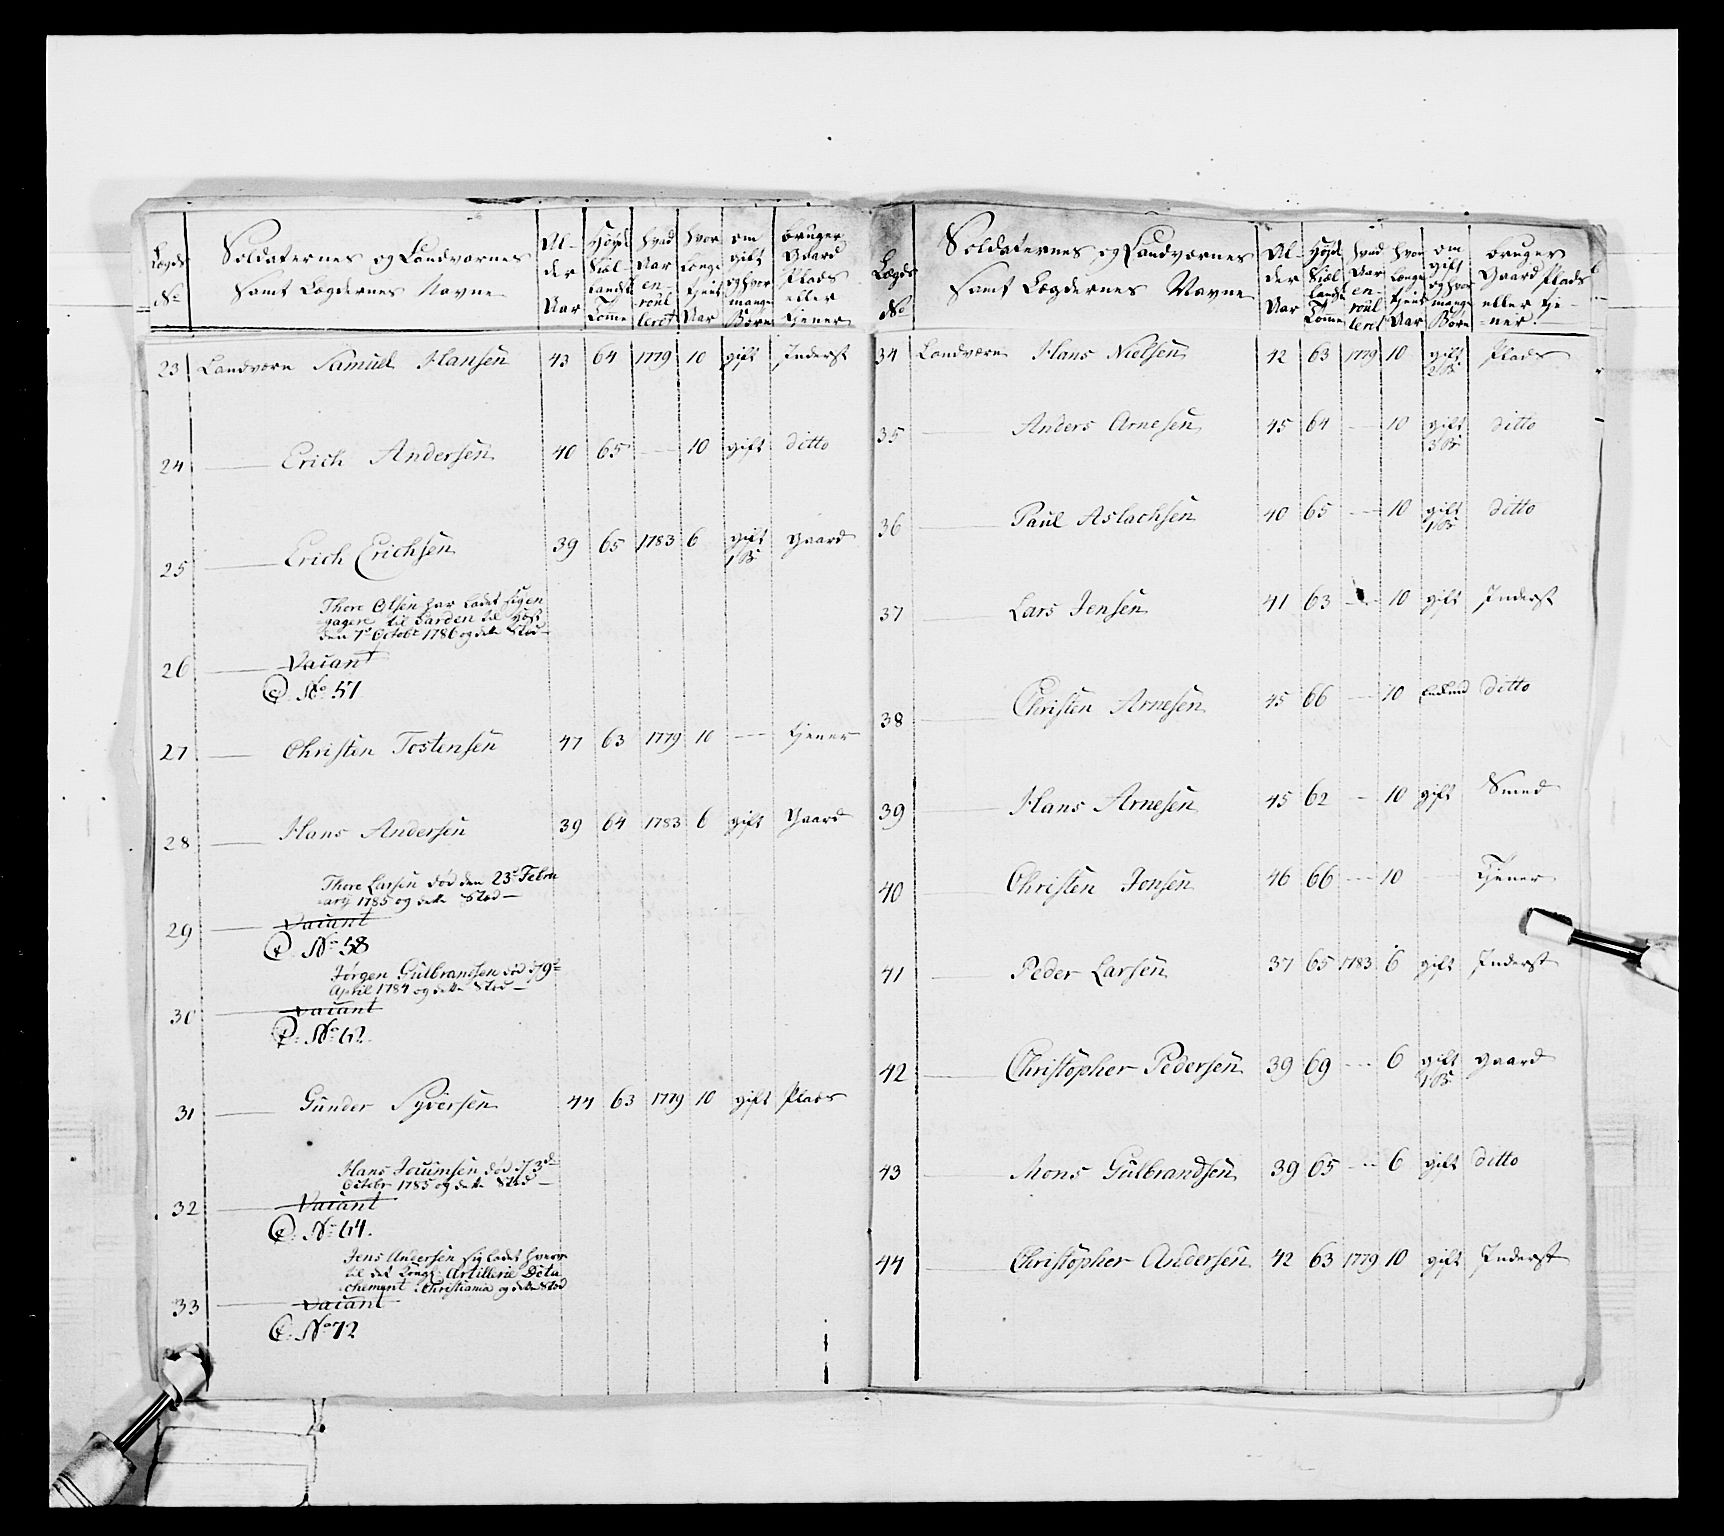 Lægds No
Soldaternes og Landværnes
samt Lægdernes Navne
Al-
der
Aar
Høyde
Siæl-
landsk
Tomme
hvad
Aar
en-
roul
leret
hvor
Længe
tient
Aar
om
gift
og hvor
mange
Børn
bruger
Gaard
Plads
eller
tiener
23 Landværn Samuel Hansen 43 64 1779 10 gift Inderst
24 Erich Andersen 40 65 10 gift ditto
25 Erich Erichsen 39 65 1783 6 gift Gaard
1 B:
Thore Olsen har ladet sig en
gagere til Garden til Hest
den 7de Octobr 1786 og dette Sted
26 Vacant
No 57
27 Christen Tostensen 47 63 1779 10 tiener
28 Hans Andersen 39 64 1783 6 gift Gaard
Thore Larsen død den 23de Febru
arij 1785 og dette Sted
29 Vacant
No 58
Jørgen Gulbrandsen død d 19de
April 1784 og dette Sted
30 Vacant
No 62
31 Gunder Syversen 44 63 1779 10 gift Plads
Hans død d 3de
Octobr 1785 og dette Sted
32 Vacant
No 64.
Jens Andersen sig ladet hverve
til det Kongl: Artillerie Deta
chement Christiania og dette Sted
33 Vacant
No 72
Lægds No
Soldaternes og Landværnes
samt Lægdernes Navne
Al-
der
Aar
Høyde
Siæl
landsk
Tomme
hvad
Aar
en-
roul
leret
hvor
Længe
tient
Aar
om
gift
og hvor
mange
Børn
bruger
Gaard Plads
eller tie-
ner.
34 Landværn Hans Nielsen 42 63 1779 10 gift Plads
2 B:
35 Anders Arnesen 45 64 10 gift ditto
3 B:
36 Paul Aslachsen 40 65 10 gift ditto
1 B:
37 Lars Jensen 41 63 10 gift Inderst
38 Christen Arnesen 45 66 10 ditto
39 Hans Arnesen 45 62 10 gift Smed
40 Christen Jonsen 46 66 10 Tjener
41 Peder Larsen 37 65 1783 6 gift Inderst
42 Christopher Pedersen 39 69 6 gift gaard
1 B:
43 Mons Gulbrandsen 39 65 6 gift ditto
44 Christopher Andersen 42 63 1779 10 gift Inderst